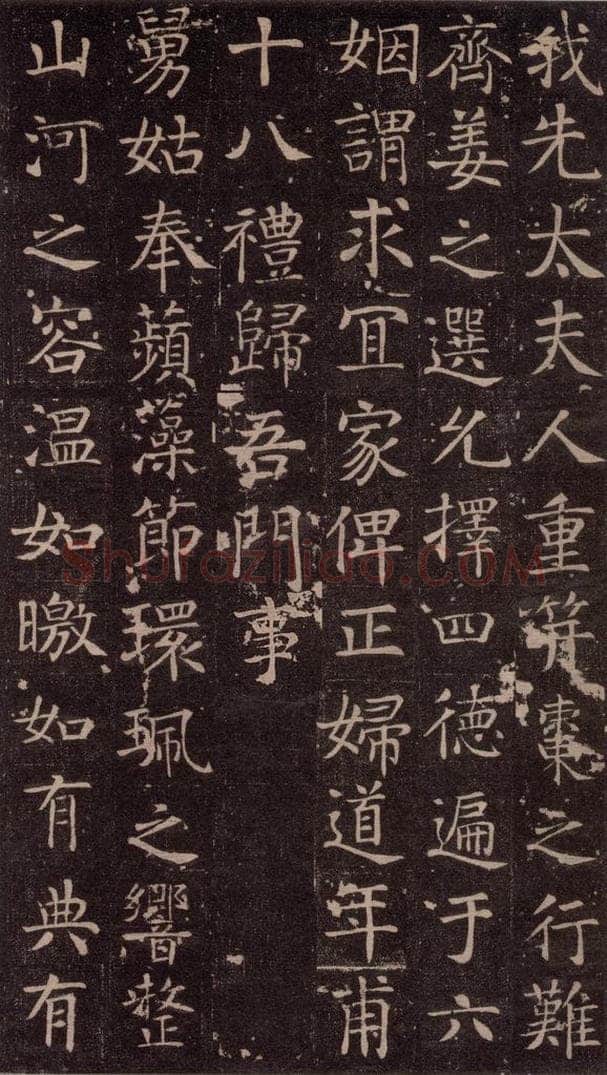 我先太夫人重笄棗之行難
齊姜之選允擇四德遍于六
姻謂求宜家俾正婦道年甫
十八禮歸吾門事
舅姑奉蘋藻節環珮之響整
山河之容温如曒如有典有
Shufaziliao.COM